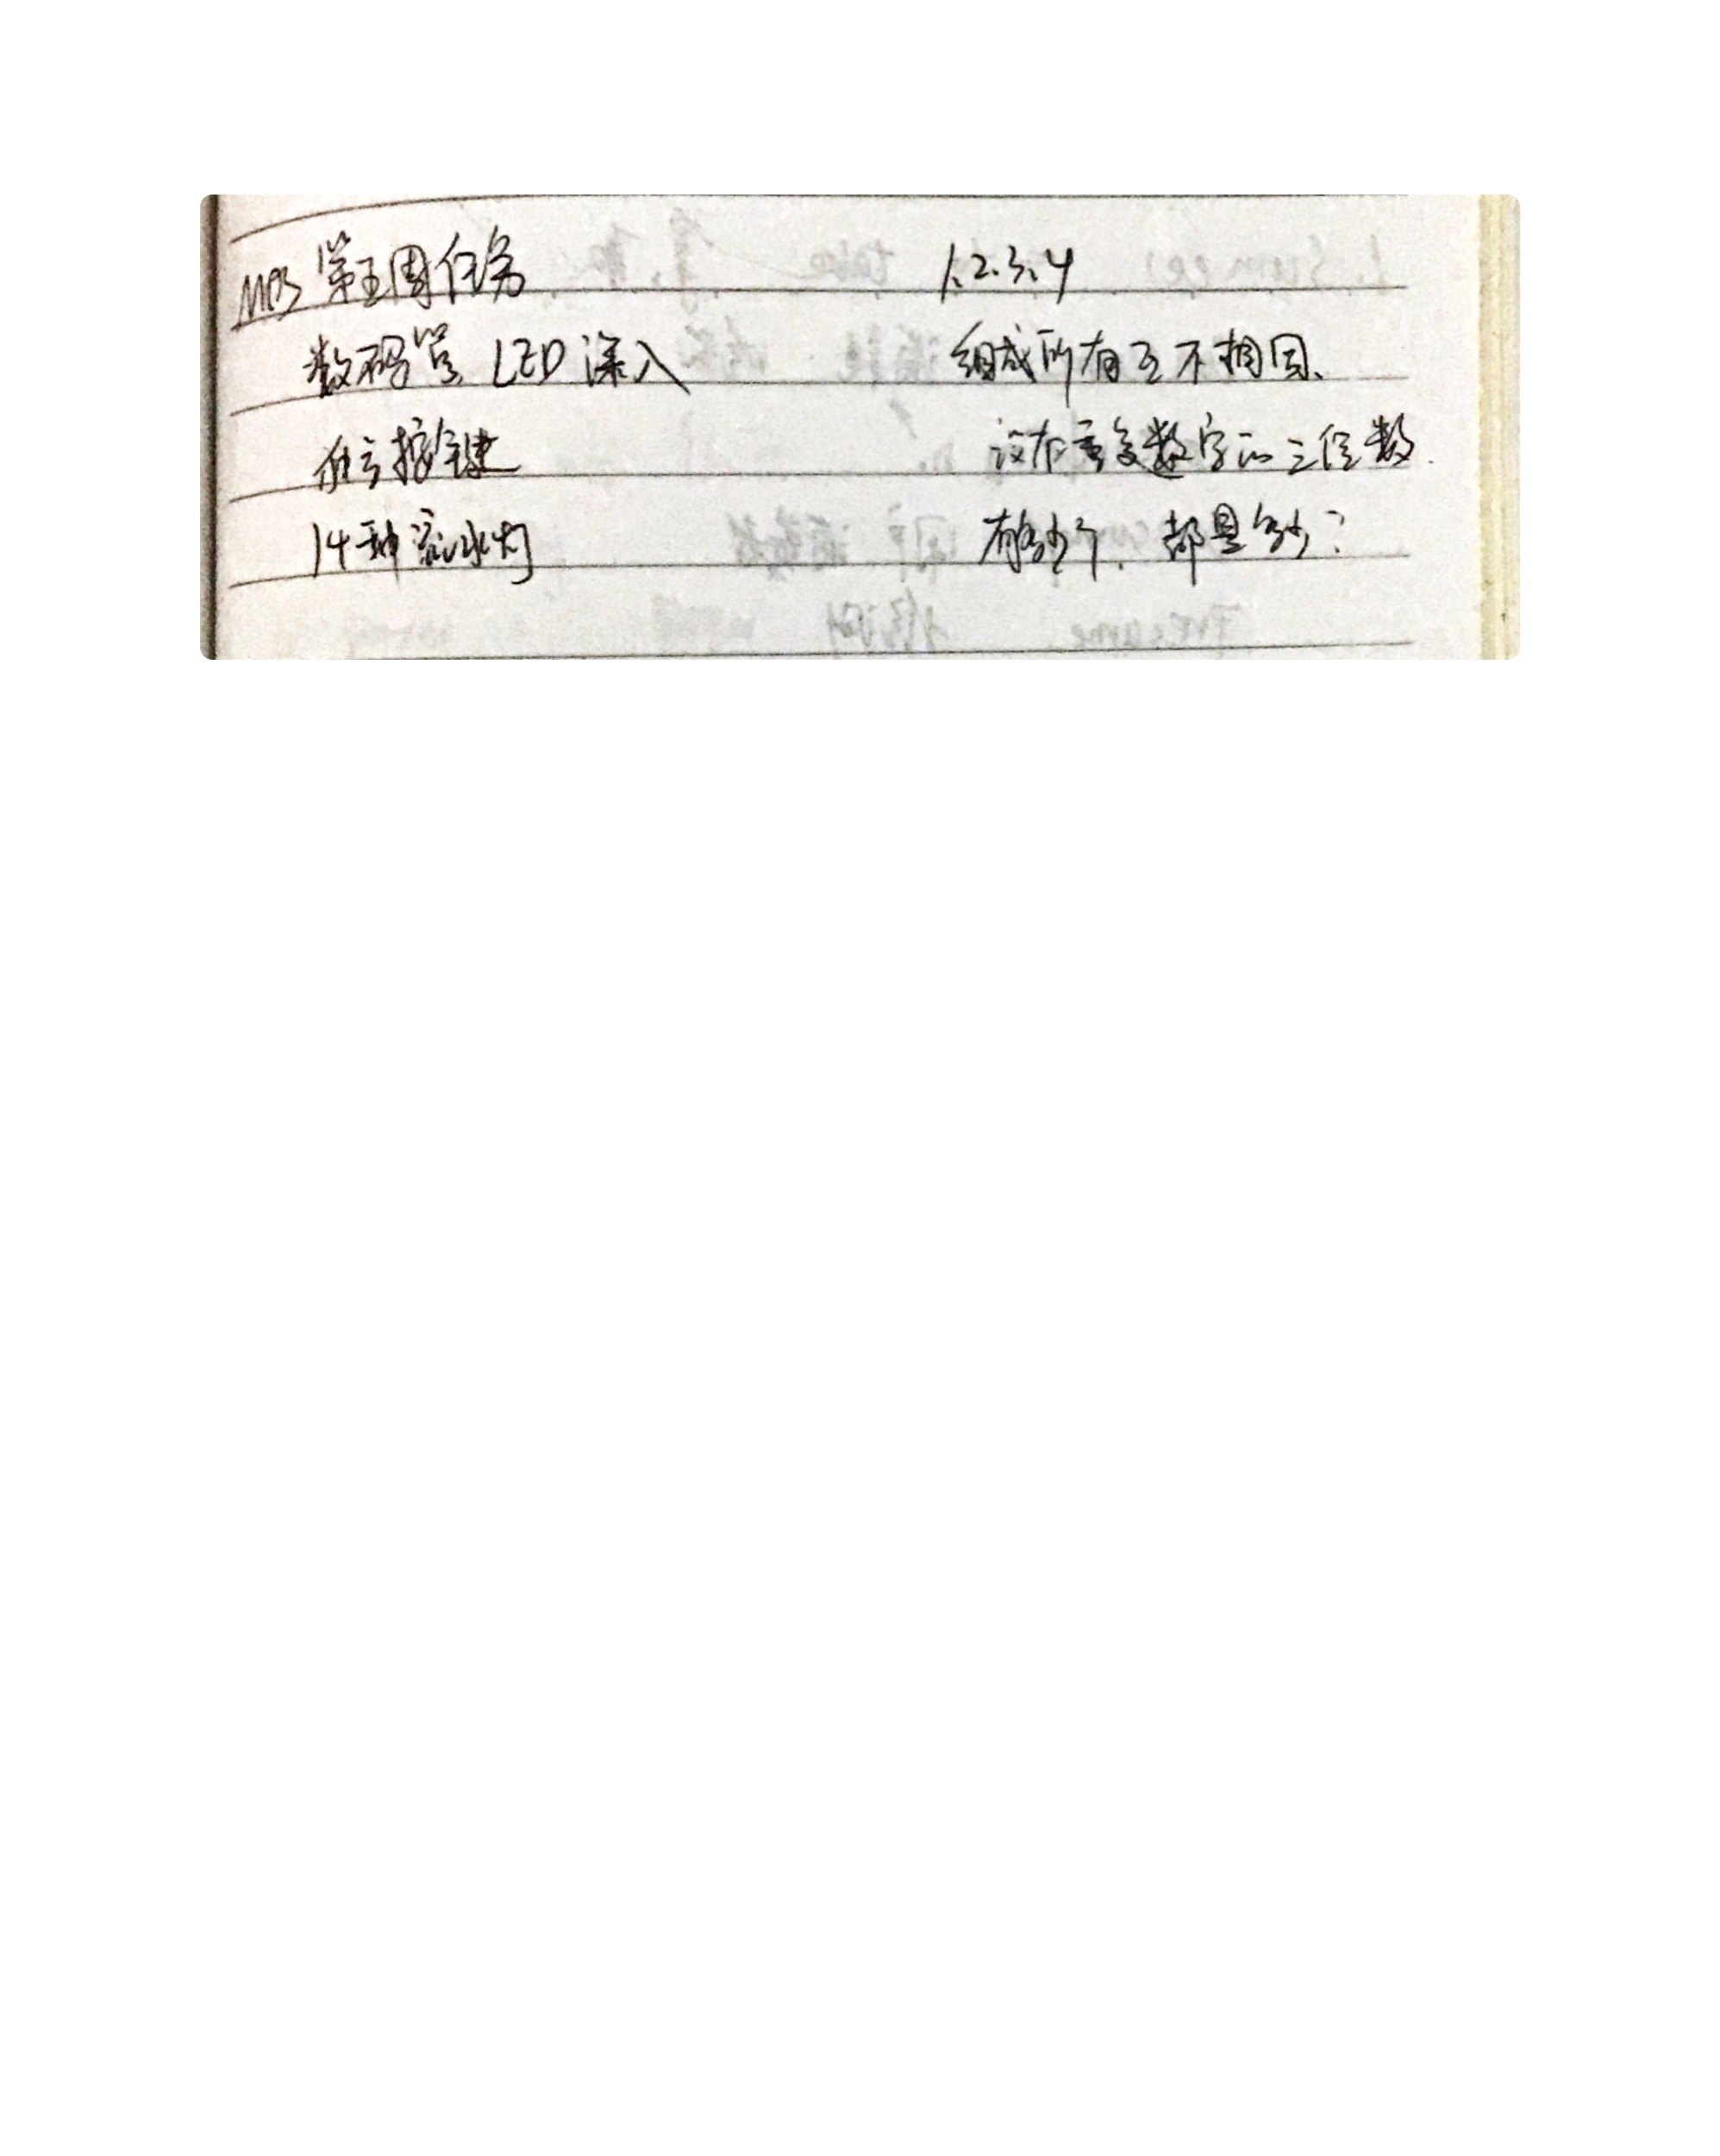 第五周任务
数码管 LED 深入
按键
14种流水灯
1.2.3.4
组成所有互不相同、
没有重复数字的三位数.
有多少个. 都是多少?